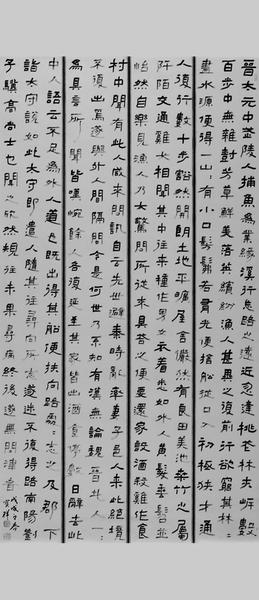 晉太元中武陵人捕魚為業緣溪行忘路之遠近忽逢桃花林夾岸數
百步中無雜樹芳草鮮美落英繽紛漁人甚異之復前行欲窮其林林
盡水源便得一山山有小口髣髴若有光便捨船從口入初極狹才通
人復行數十步豁然開朗土地平曠屋舍儼然有良田美池桑竹之屬
阡陌交通雞犬相聞其中往來種作男女衣著悉如外人黃髮垂髫並
怡然自樂見漁人乃大驚問所從來具答之便要還家設酒殺雞作食
村中聞有此人咸來問訊自云先世避秦時亂率妻子邑人來此絕境
不復出焉遂與外人間隔問今是何世乃不知有漢無論魏晉此人一一
為具言所聞皆嘆惋餘人各復延至其家皆出酒食停數日辭去此
中人語云不足為外人道也既出得其船便扶向路處處志之及郡下
詣太守說如此太守即遣人隨其往尋向所志遂迷不復得路南陽劉
子驥高尚士也聞之欣然規往未果尋病終後遂無問津者
戊戌年春